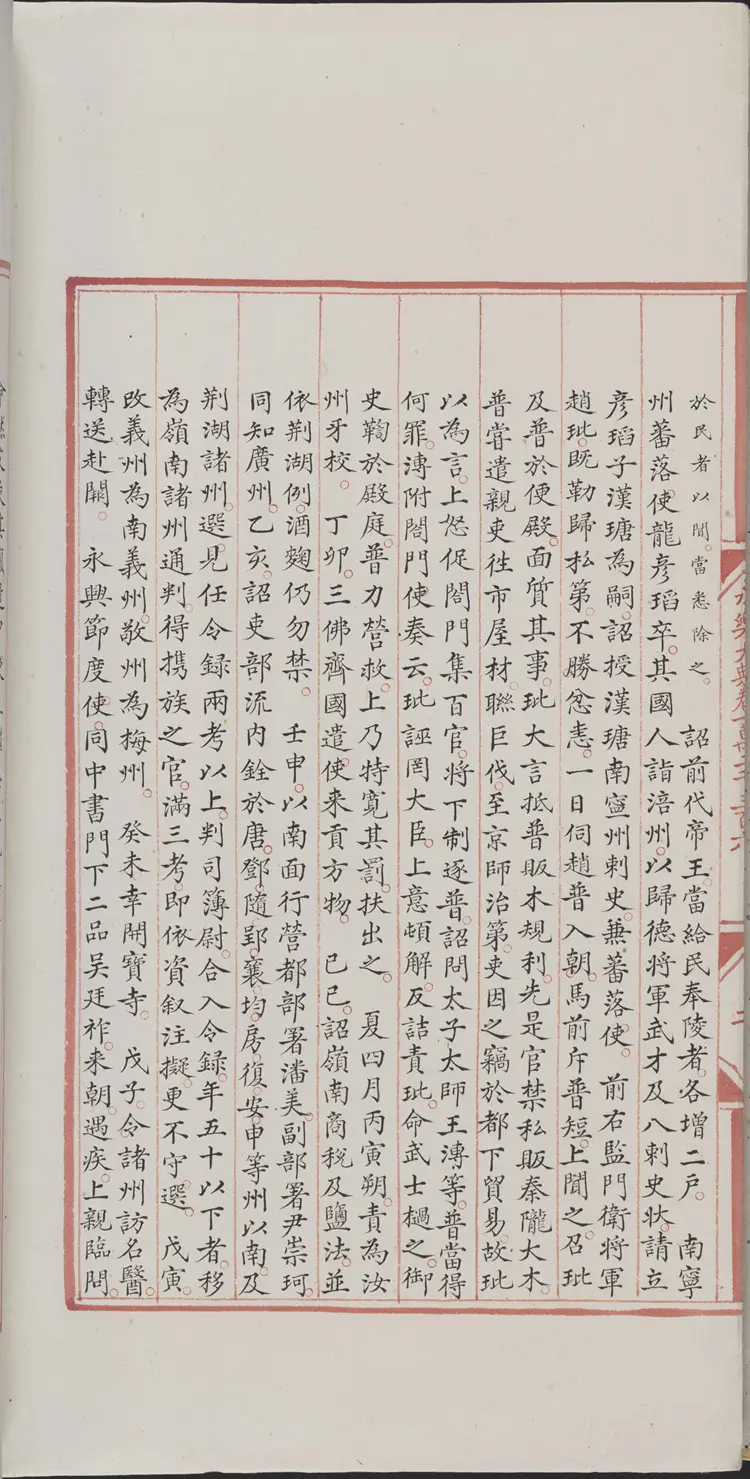 於民者以聞。當悉除之。　詔前代帝王。當給民奉陵者。各增二戶。　南寧
州蕃落使龍彥瑫卒。其國人詣涪州。以歸德將軍武才及八刺史狀。請立
彥瑫子漢瑭為嗣。詔授漢瑭南寧州刺史。兼蕃落使。　前右監門衛將軍
趙玭。既勒歸私第。不勝忿恚。一日伺趙普入朝。馬前斥普短。上聞之。召玭
及普於便殿。面質其事。玭大言抵普販木規利。先是官禁私販秦隴大木。
普嘗遣親吏往市屋材。聯巨伐。至京師治第。吏因之竊於都下貿易。故玭
以為言。上怒促閤門集百官。將下制逐普。詔問太子太師王溥等。普當得
何罪。溥附閤門使奏云。玭誣罔大臣。上意頓解。反詰責玭。命武士檛之。御
史鞫於殿庭。普力營救。上乃特寬其罰。扶出之。　夏四月丙寅朔。責為汝
州牙校。　丁卯。三佛齊國遣使來貢方物。　己巳。詔嶺南商稅及鹽法。並
依荆湖例。酒麴仍勿禁。　壬申。以南面行營都部署潘美。副部署尹崇珂。
同知廣州。乙亥。詔吏部流内銓於唐。鄧。隨。郢。襄。均。房。復。安。申等州以南。及
荆湖諸州。選見任令録兩考以上。判司簿尉。合入令録。年五十以下者。移
為嶺南諸州通判。得携族之官。滿三考。即依資叙注擬。更不守選。　戊寅。
改義州為南義州。敬州為梅州。　癸未。幸開寶寺。　戊子。令諸州訪名醫。
轉送赴闕。　永興節度使。同中書門下二品吳廷祚。來朝。遇疾。上親臨問。